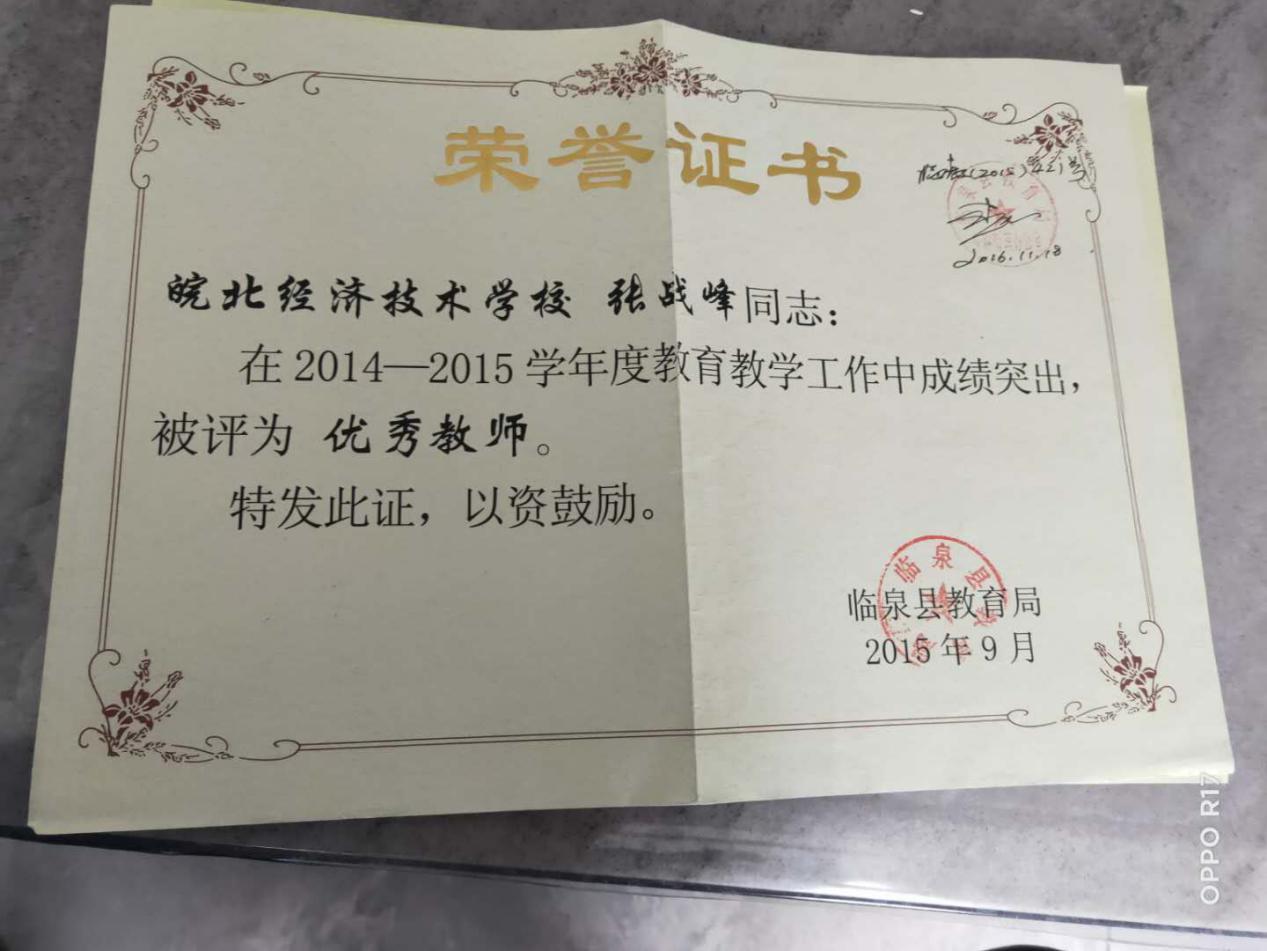 荣誉证书
临教(2015)221号
2016.11.18
皖北经济技术学校 张战峰同志：
在2014—2015学年度教育教学工作中成绩突出，
被评为 优秀教师。
特发此证，以资鼓励。
临泉县
临泉县教育局
2015年9月
OPPO R17